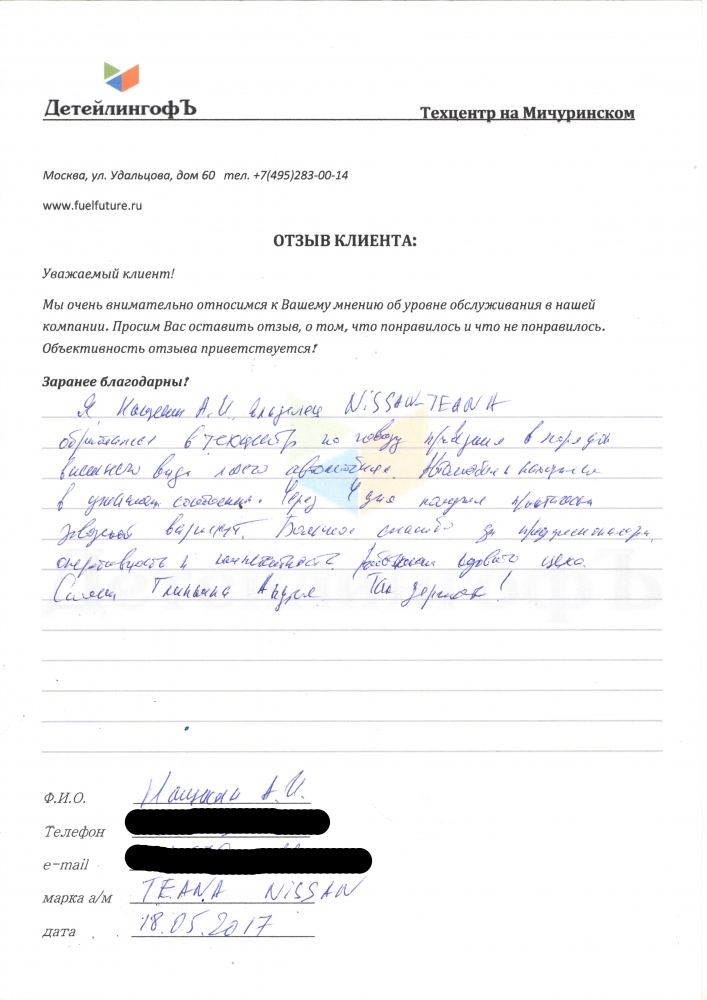 ДетейлингофЪ
Техцентр на Мичуринском
Москва, ул. Удальцова, дом 60 тел. +7(495)283-00-14
www.fuelfuture.ru
ОТЗЫВ КЛИЕНТА:
Уважаемый клиент!
Мы очень внимательно относимся к Вашему мнению об уровне обслуживания в нашей
компании. Просим Вас оставить отзыв, о том, что понравилось и что не понравилось.
Объективность отзыва приветствуется!
Заранее благодарны!
Я, А.И., владелец NISSAN-TEANA
обратился в техцентр по поводу приведения в порядок
внешнего вида моего автомобиля. Автомобиль находился
в ужасном состоянии. Через 4 дня получил практически
заводской вариант. Большое спасибо за профессионализм,
оперативность и компетентность работникам кузовного цеха.
Андрея. Так держать!
Ф.И.О. А.И.
Телефон
e-mail
марка а/м TEANA NISSAN
дата 18.05.2017